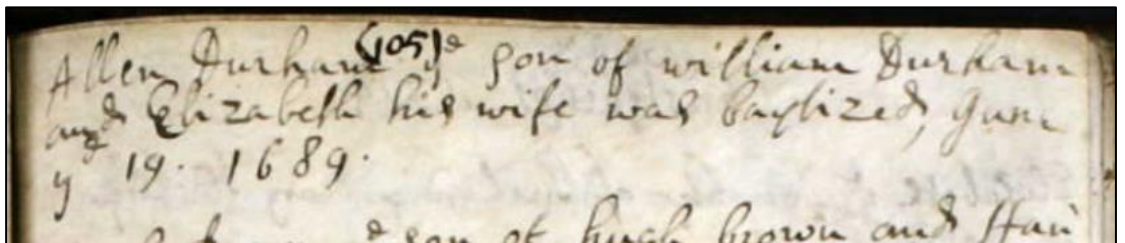 Allen Durham (105) ye son of william Durham
and Elizabeth his wife was baptized, June
ye 19. 1689.
ye son of hugh brown and Han